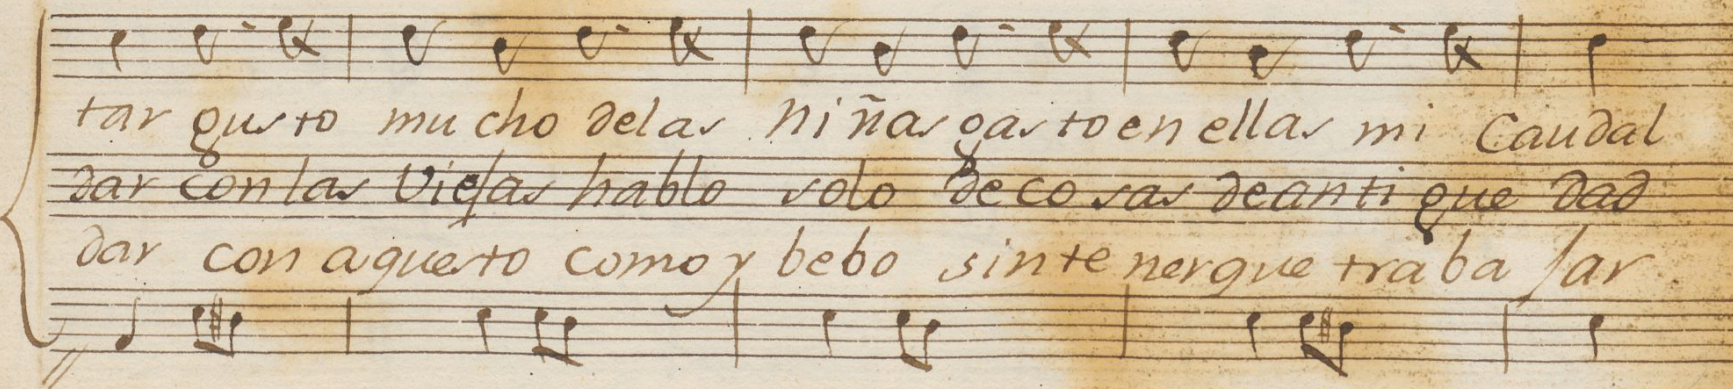 tar gusto mucho delas niñas gasto en ellas mi caudal
dar con las viejas hablo solo de cosas de antiguedad
dar con aquesto como y bebo sin tener que trabajar